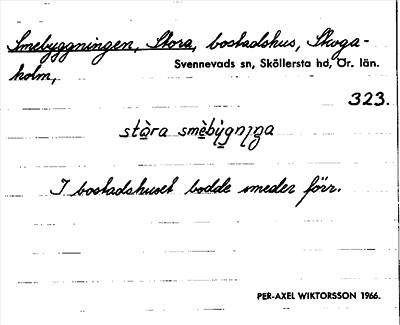 Smebyggningen, Stora, bostadshus, Skoga-
holm, Svennevads sn, Sköllersta hd, Ör. län.
323.
stò̠ra smè̠bẏ̠gnıṇa
I bostadshuset bodde smeder förr.
PER-AXEL WIKTORSSON 1966.